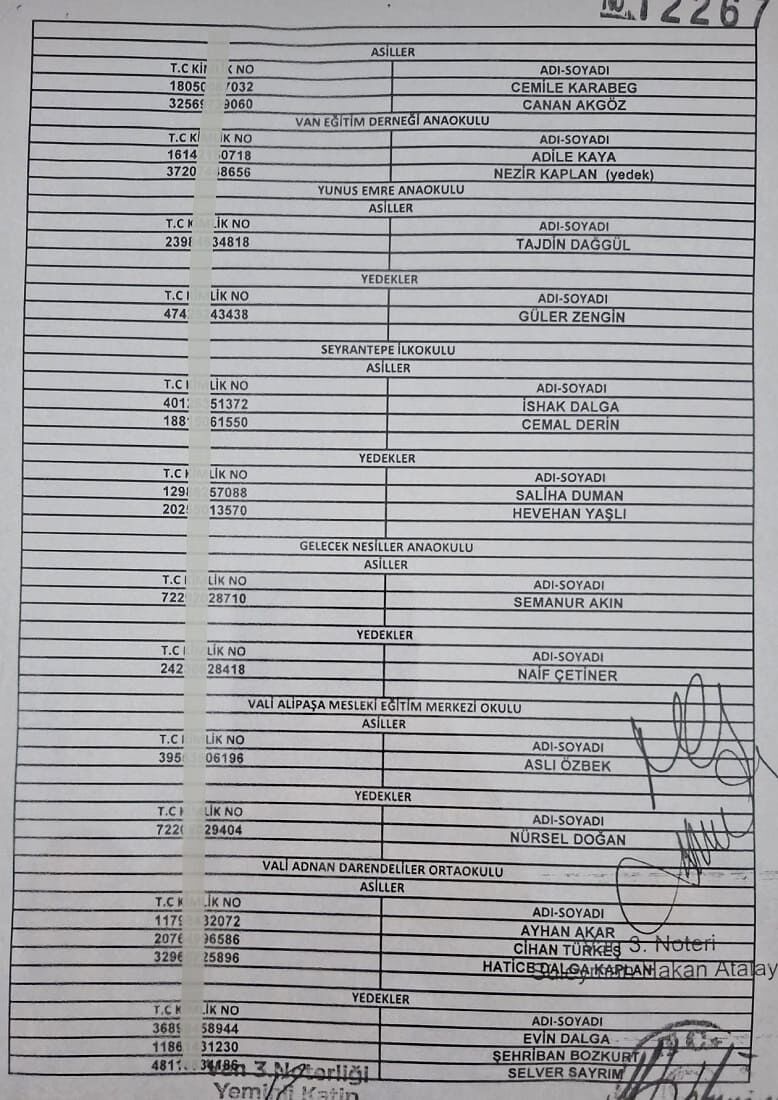 No. 12267
ASİLLER
T.C KİMLİK NO ADI-SOYADI
18050 7032 CEMİLE KARABEG
32569 9060 CANAN AKGÖZ
VAN EĞİTİM DERNEĞİ ANAOKULU
T.C KİMLİK NO ADI-SOYADI
1614 0718 ADİLE KAYA
3720 8656 NEZİR KAPLAN (yedek)
YUNUS EMRE ANAOKULU
ASİLLER
T.C KİMLİK NO ADI-SOYADI
239 34818 TAJDİN DAĞGÜL
YEDEKLER
T.C KİMLİK NO ADI-SOYADI
474 43438 GÜLER ZENGİN
SEYRANTEPE İLKOKULU
ASİLLER
T.C KİMLİK NO ADI-SOYADI
401 51372 İSHAK DALGA
188 61550 CEMAL DERİN
YEDEKLER
T.C KİMLİK NO ADI-SOYADI
129 57088 SALİHA DUMAN
202 13570 HEVEHAN YAŞLI
GELECEK NESİLLER ANAOKULU
ASİLLER
T.C KİMLİK NO ADI-SOYADI
722 28710 SEMANUR AKIN
YEDEKLER
T.C KİMLİK NO ADI-SOYADI
242 28418 NAİF ÇETİNER
VALİ ALİPAŞA MESLEKİ EĞİTİM MERKEZİ OKULU
ASİLLER
T.C KİMLİK NO ADI-SOYADI
395 06196 ASLI ÖZBEK
YEDEKLER
T.C KİMLİK NO ADI-SOYADI
722 29404 NÜRSEL DOĞAN
VALİ ADNAN DARENDELİLER ORTAOKULU
ASİLLER
T.C KİMLİK NO ADI-SOYADI
1179 32072 AYHAN AKAR
2076 96586 CİHAN TÜRKEŞ
3296 25896 HATİCE DALGA KAPLAN
3. Noteri
Hakan Atalay
YEDEKLER
T.C KİMLİK NO ADI-SOYADI
3689 58944 EVİN DALGA
1186 31230 ŞEHRİBAN BOZKURT
481 34186 SELVER SAYRIM
Van 3.Noterliği
Yeminli Katip